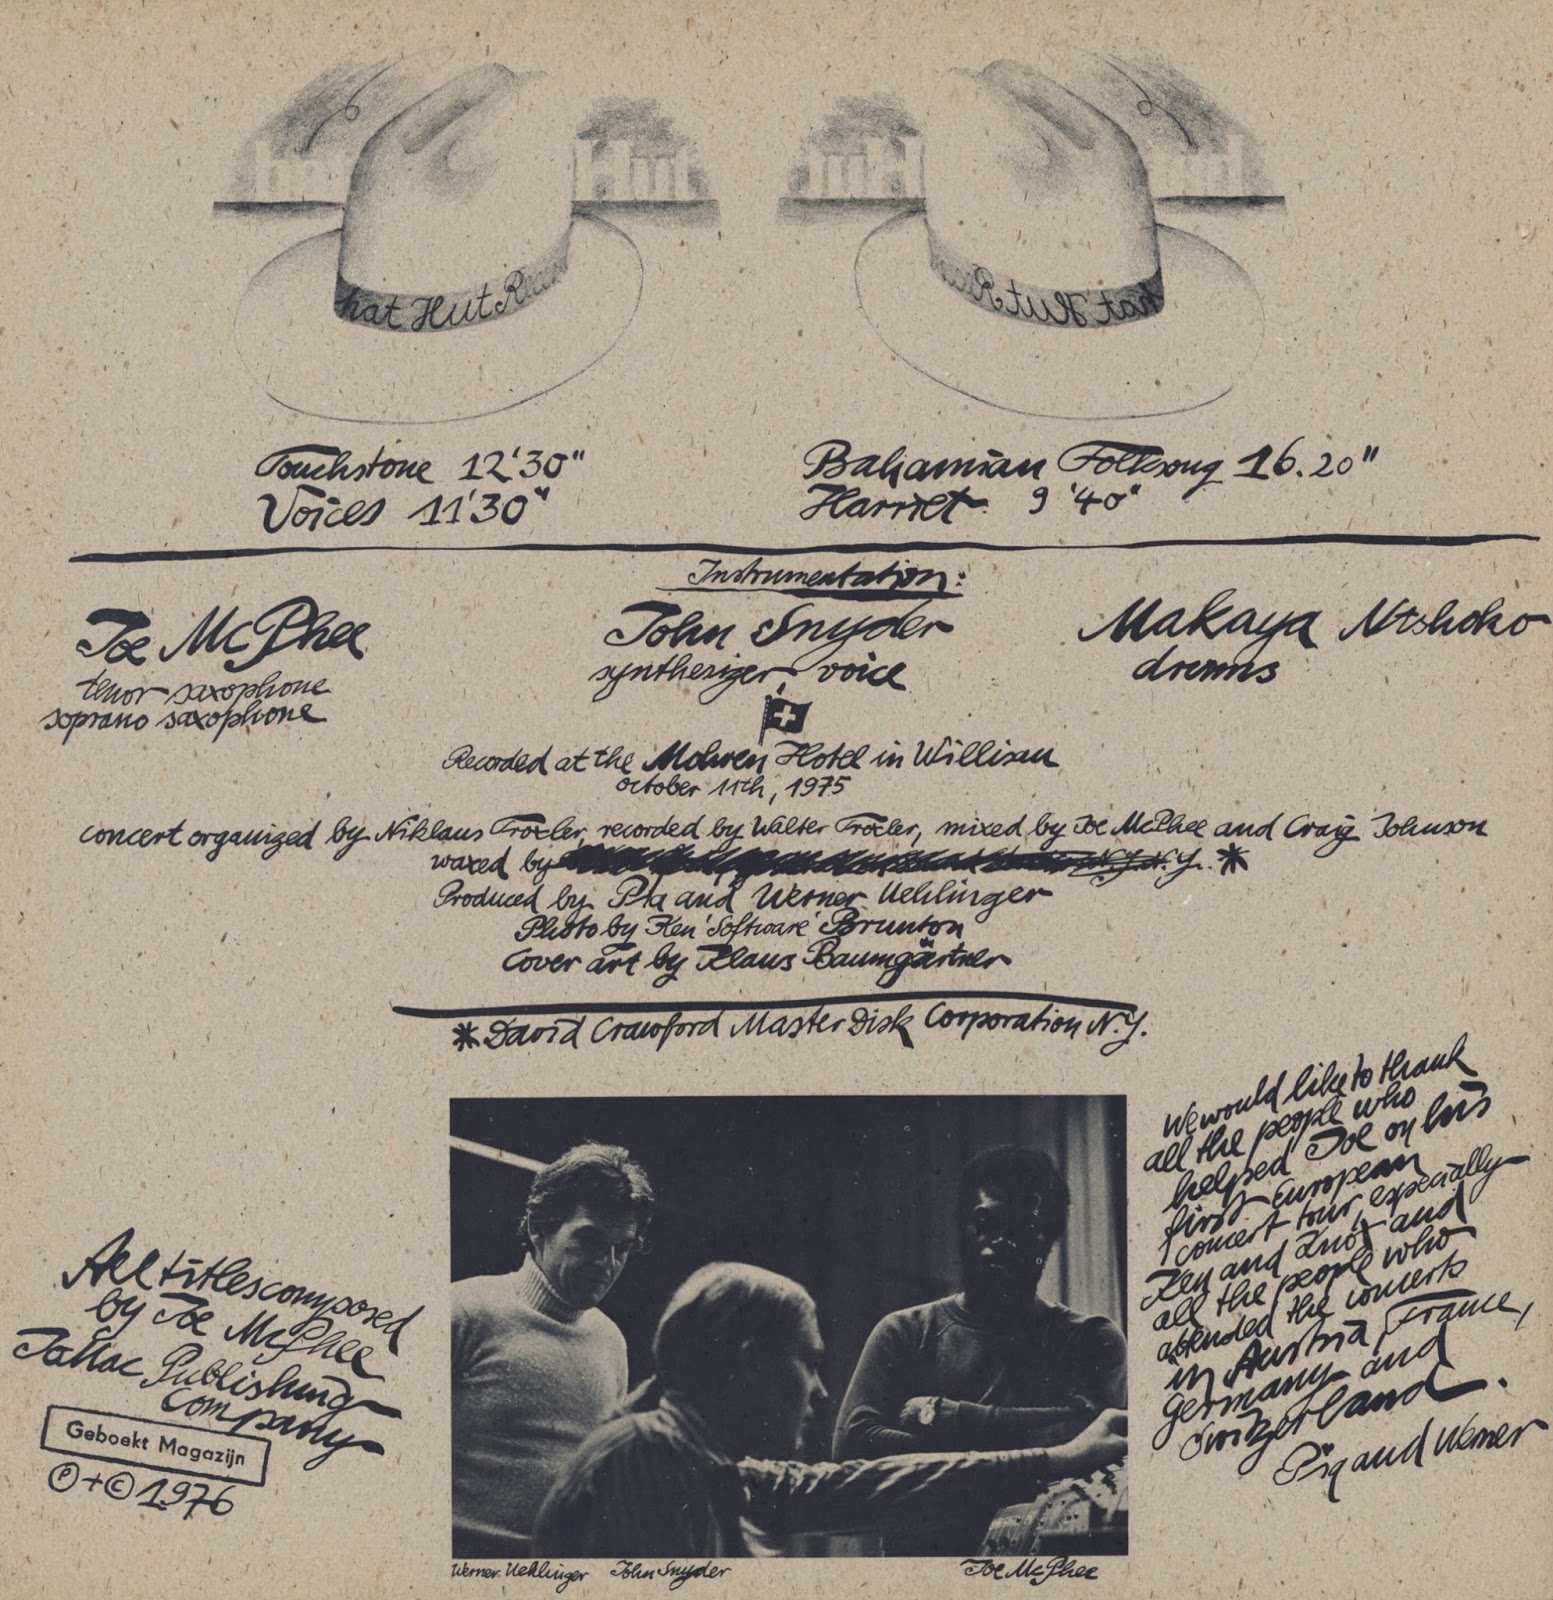 hat Hut Reco
hat Hut Reco
Touchstone 12'30"
Voices 11'30"
Bahamian Folksong 16.20"
Harriet 9'40"
Instrumentation:
Joe McPhee
tenor saxophone
soprano saxophone
John Snyder
synthesizer, voice
Makaya Ntshoko
drums
Recorded at the Mohren Hotel in Willisau
October 11th, 1975
concert organized by Niklaus Troxler, recorded by Walter Troxler, mixed by Joe McPhee and Craig Johnson
waxed by N.Y. *
Produced by Pia and Werner Uehlinger
Photo by Ken 'Software' Brunton
Cover art by Klaus Baumgärtner
* David Crawford Master Disk Corporation N.Y.
We would like to thank
all the people who
helped Joe on his
first European
concert tour, especially
Ken and Knox and
all the people who
attended the concerts
in Austria, France,
Germany and
Switzerland.
Pia and Werner
All titles composed
by Joe McPhee
Publishing
Company
Geboekt Magazijn
℗+© 1976
Werner Uehlinger John Snyder Joe McPhee